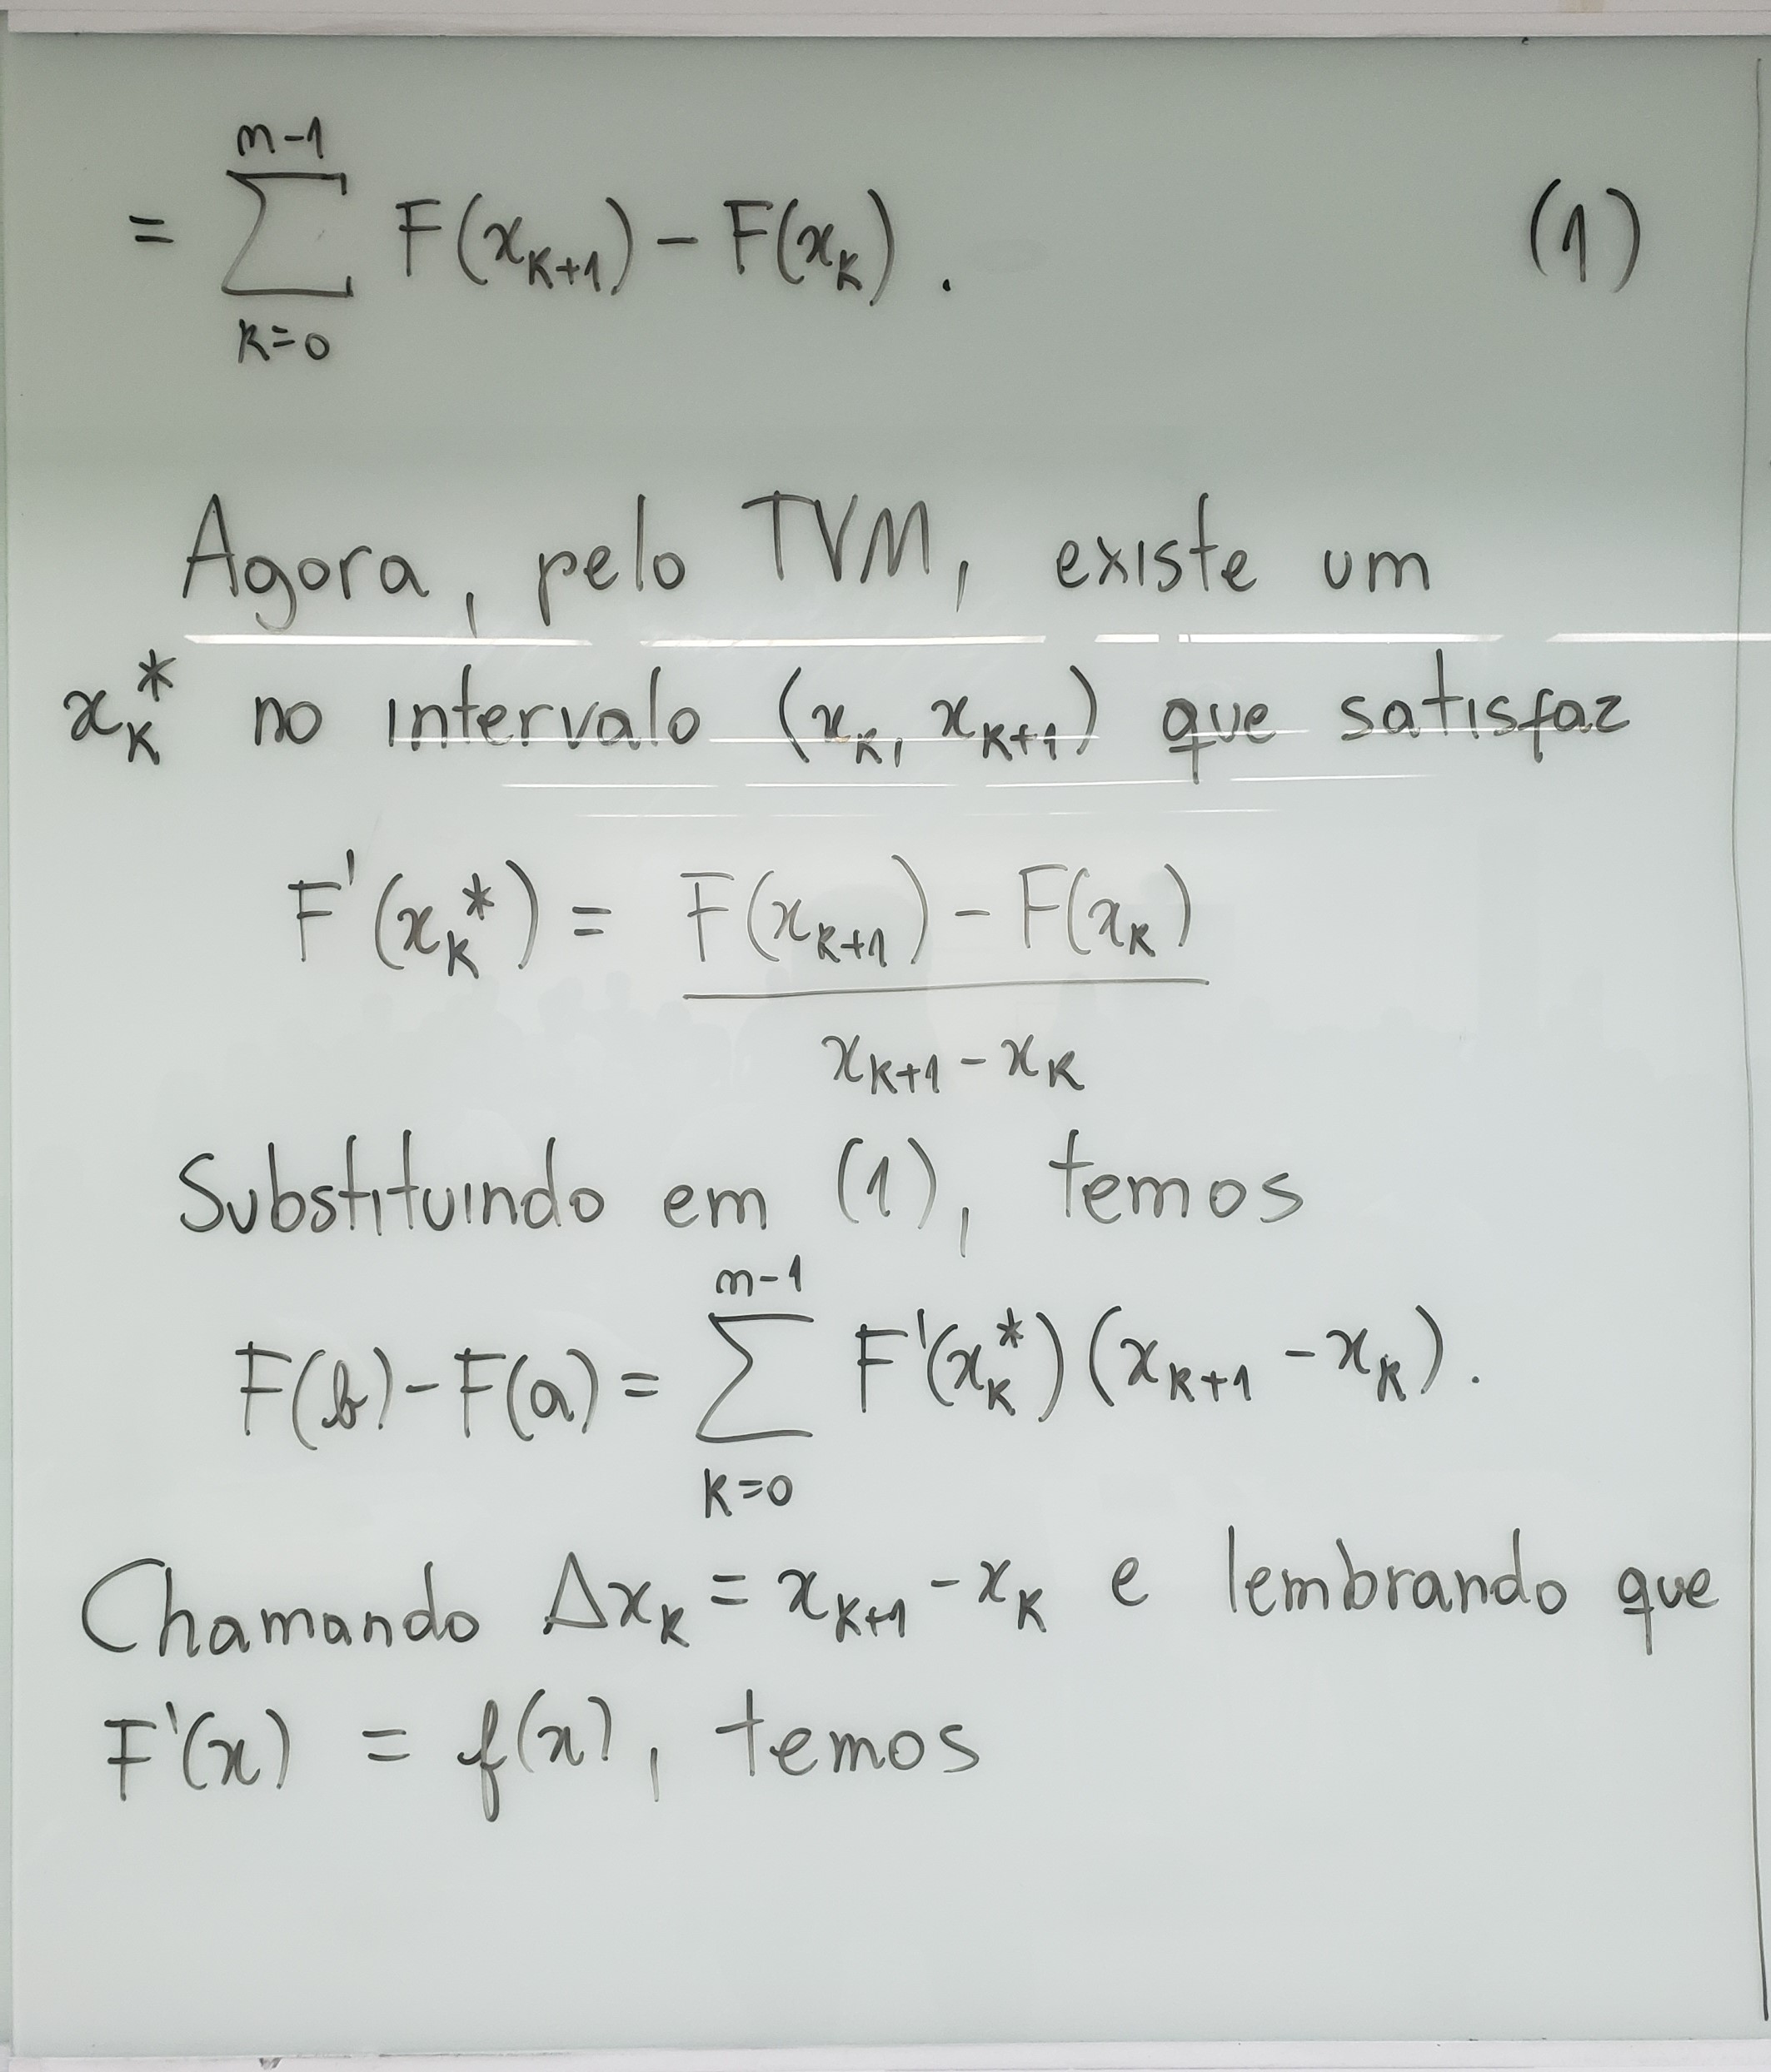 = \sum_{k=0}^{n-1} F(x_{k+1}) - F(x_k). (1)
Agora, pelo TVM, existe um
x_k^* no intervalo (x_k, x_{k+1}) que satisfaz
F'(x_k^*) = \frac{F(x_{k+1}) - F(x_k)}{x_{k+1} - x_k}
Substituindo em (1), temos
F(b) - F(a) = \sum_{k=0}^{n-1} F'(x_k^*)(x_{k+1} - x_k).
Chamando Δx_k = x_{k+1} - x_k e lembrando que
F'(x) = f(x), temos